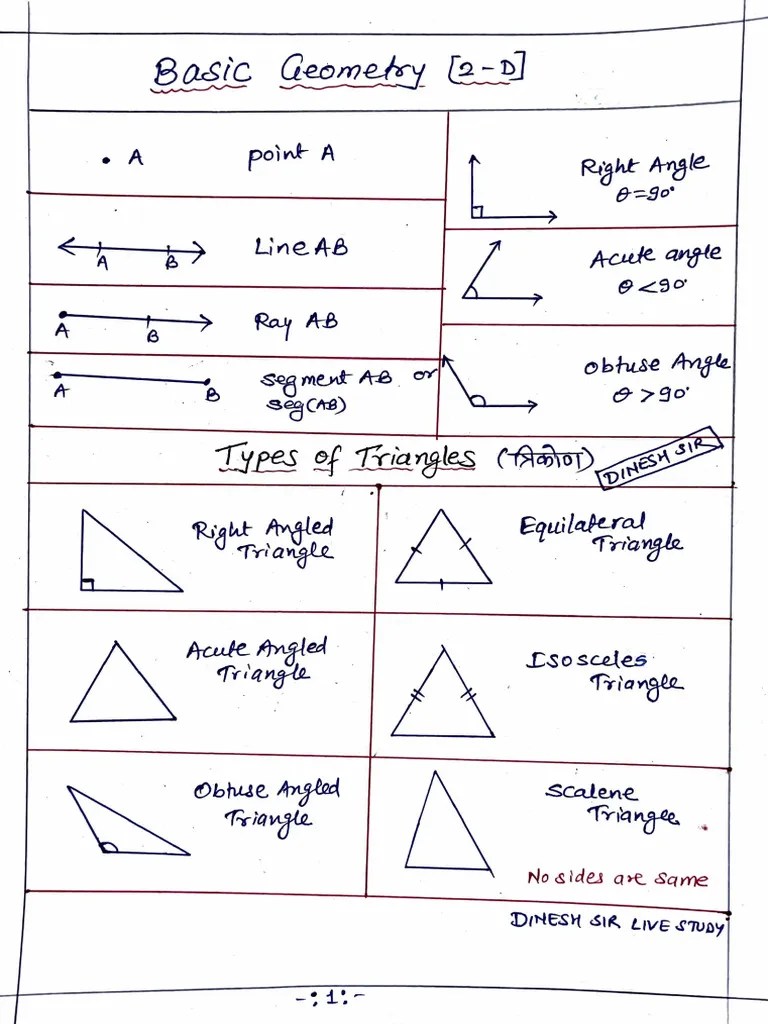 Basic Geometry [2-D]
• A point A
A B Line AB
A B Ray AB
A B segment AB or
seg(AB)
Right Angle
θ=90°
Acute angle
θ<90°
Obtuse Angle
θ>90°
Types of Triangles (त्रिकोण)
DINESH SIR
Right Angled
Triangle
Equilateral
Triangle
Acute Angled
Triangle
Isosceles
Triangle
Obtuse Angled
Triangle
Scalene
Triangle
No sides are same
DINESH SIR LIVE STUDY
-:1:-